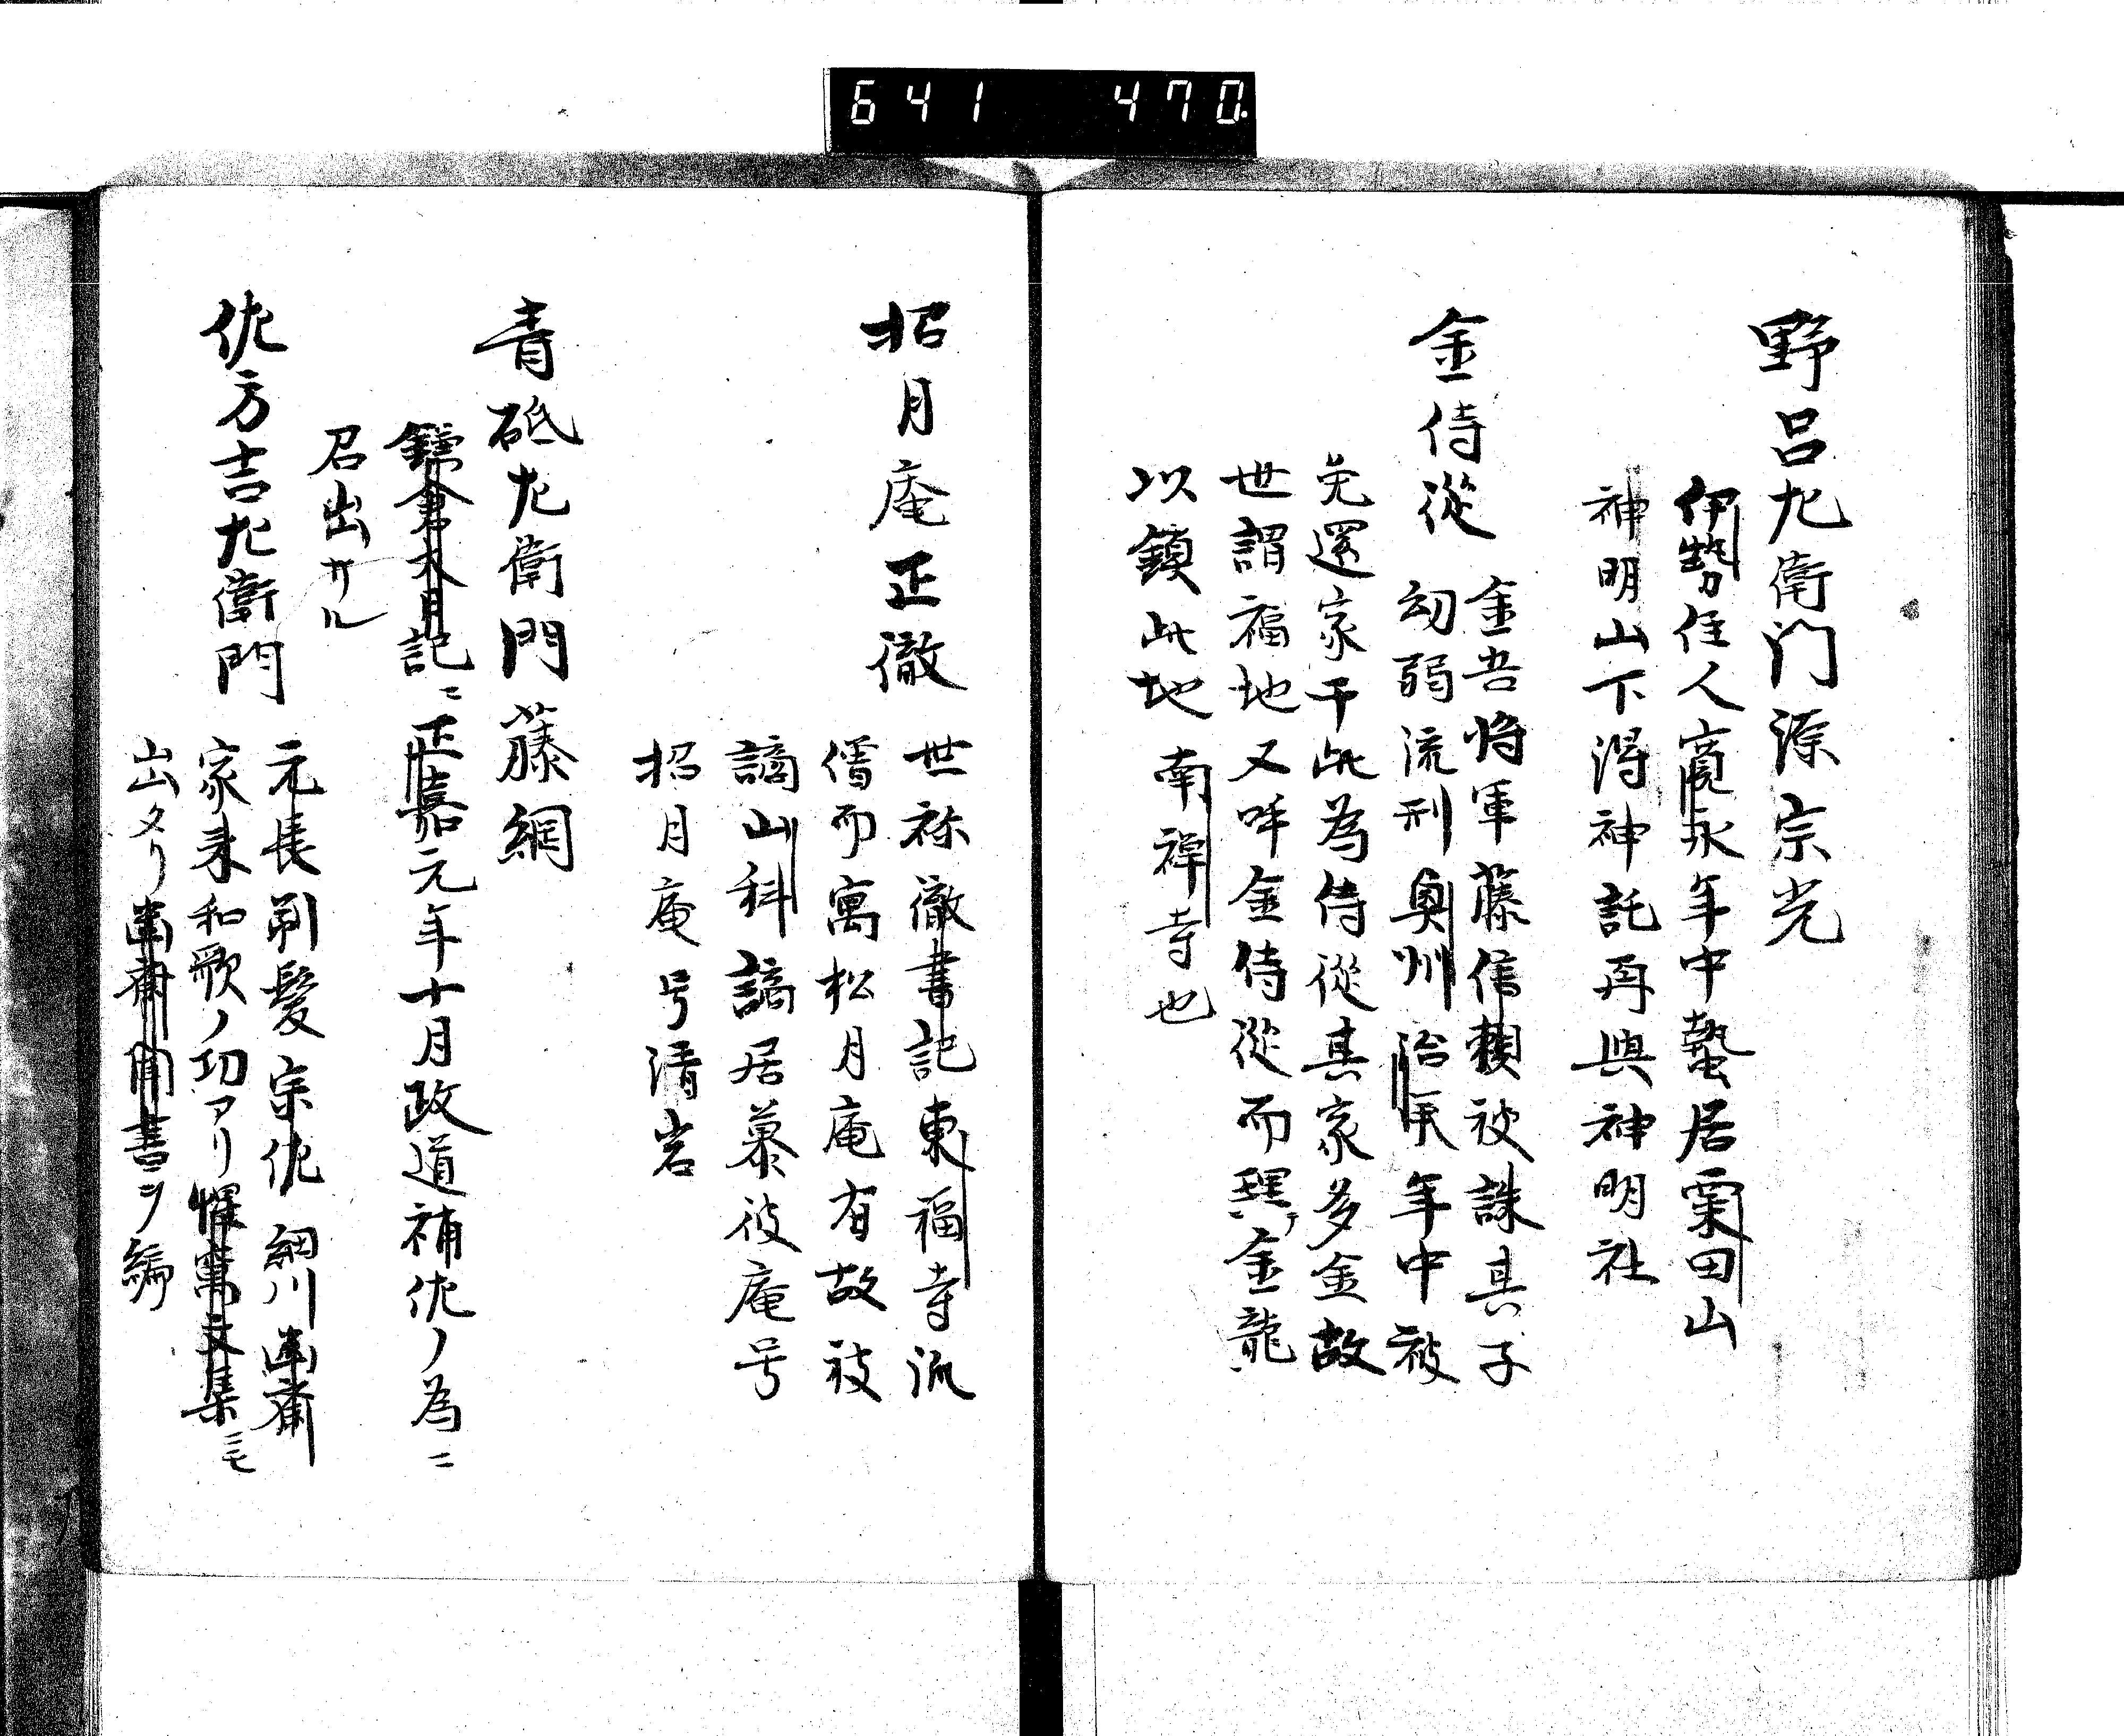 641 470
野呂左衛门源宗光
伊勢住人寛永年中蟄居粟田山
神明山下得神託再興神明社
金侍從
金吾将軍藤信頼被誅其子
幼弱流刑奥州治承年中被
免還家于此為侍從其家多金故
世謂福地又呼金侍從而釋金龍
以鎮此地 南禅寺也
招月庵正徹
世称徹書記東福寺派
僧而寓松月庵有故被
謫山科謫居慕彼庵号
招月庵号清岩
青砥左衛門藤綱
鎌倉大日記ニ正嘉元年十月政道補佐ノ為ニ
召出サル
佐方吉左衛門
元長剃髪宗佐細川幽齋
家来和歌ノ功アリ惺窩文集ニモ
出タリ幽齋聞書ヲ編